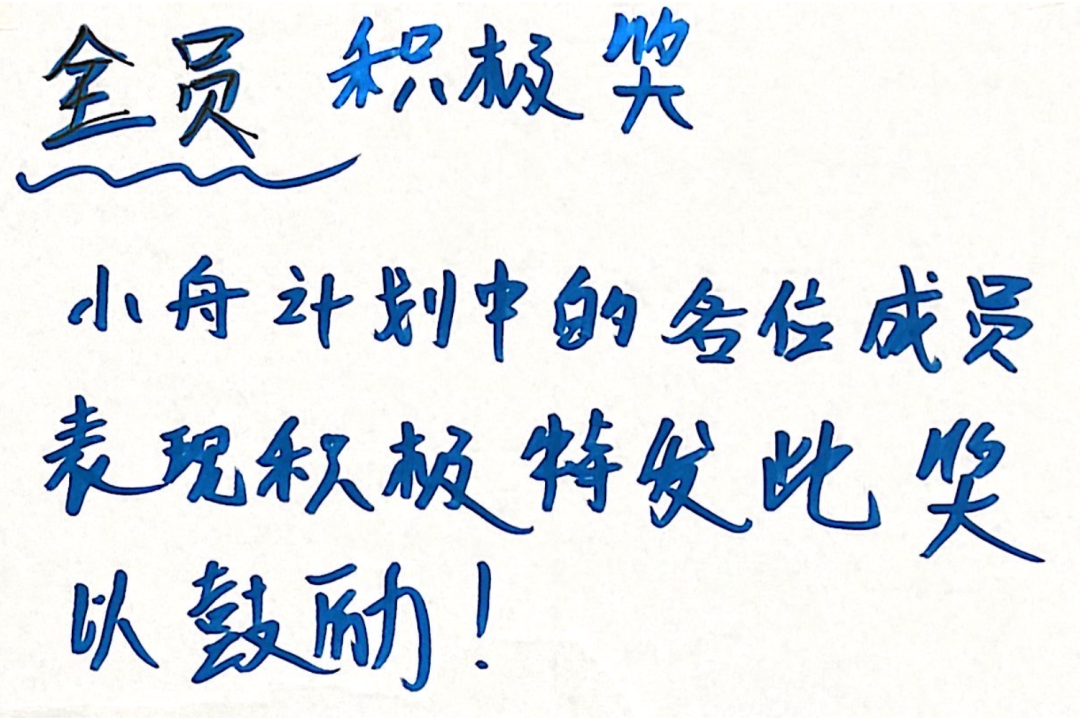 全员 积极奖
小舟计划中的各位成员
表现积极特发此奖
以鼓励！